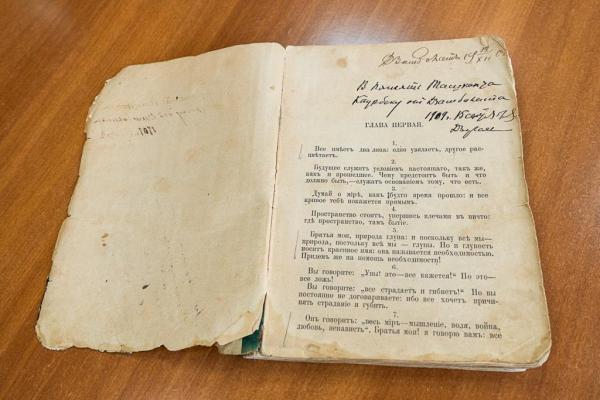 В память
1909 г.
ГЛАВА ПЕРВАЯ.
1.
Все имѣетъ два лица: одно увядаетъ, другое рас-
цвѣтаетъ.
2.
Будущее служитъ условіемъ настоящаго, такъ же,
какъ и прошедшее. Чему предстоитъ быть и что
должно быть,—служатъ основаніемъ тому, что есть.
3.
Думай о мірѣ, какъ будто время прошло: и все
кривое тебѣ покажется прямымъ.
4.
Пространство стоитъ, упершись плечами въ ничто:
гдѣ пространство, тамъ бытіе.
5.
Братья мои, природа глупа: и поскольку всѣ мы—
природа, постольку всѣ мы — глупы. Но и глупость
носитъ красивое имя: она называется необходимостью.
Придемъ же на помощь необходимости!
6.
Вы говорите: „Увы! это—все кажется!“ Но это—
все ложь!
Вы говорите: „все страдаетъ и гибнетъ!“ Но вы
постоянно не договариваете: ибо все хочетъ причи-
нять страданіе и губить.
7.
Онъ говоритъ: „весь міръ—мышленіе, воля, война,
любовь, ненависть“. Братья мои! я говорю вамъ: все